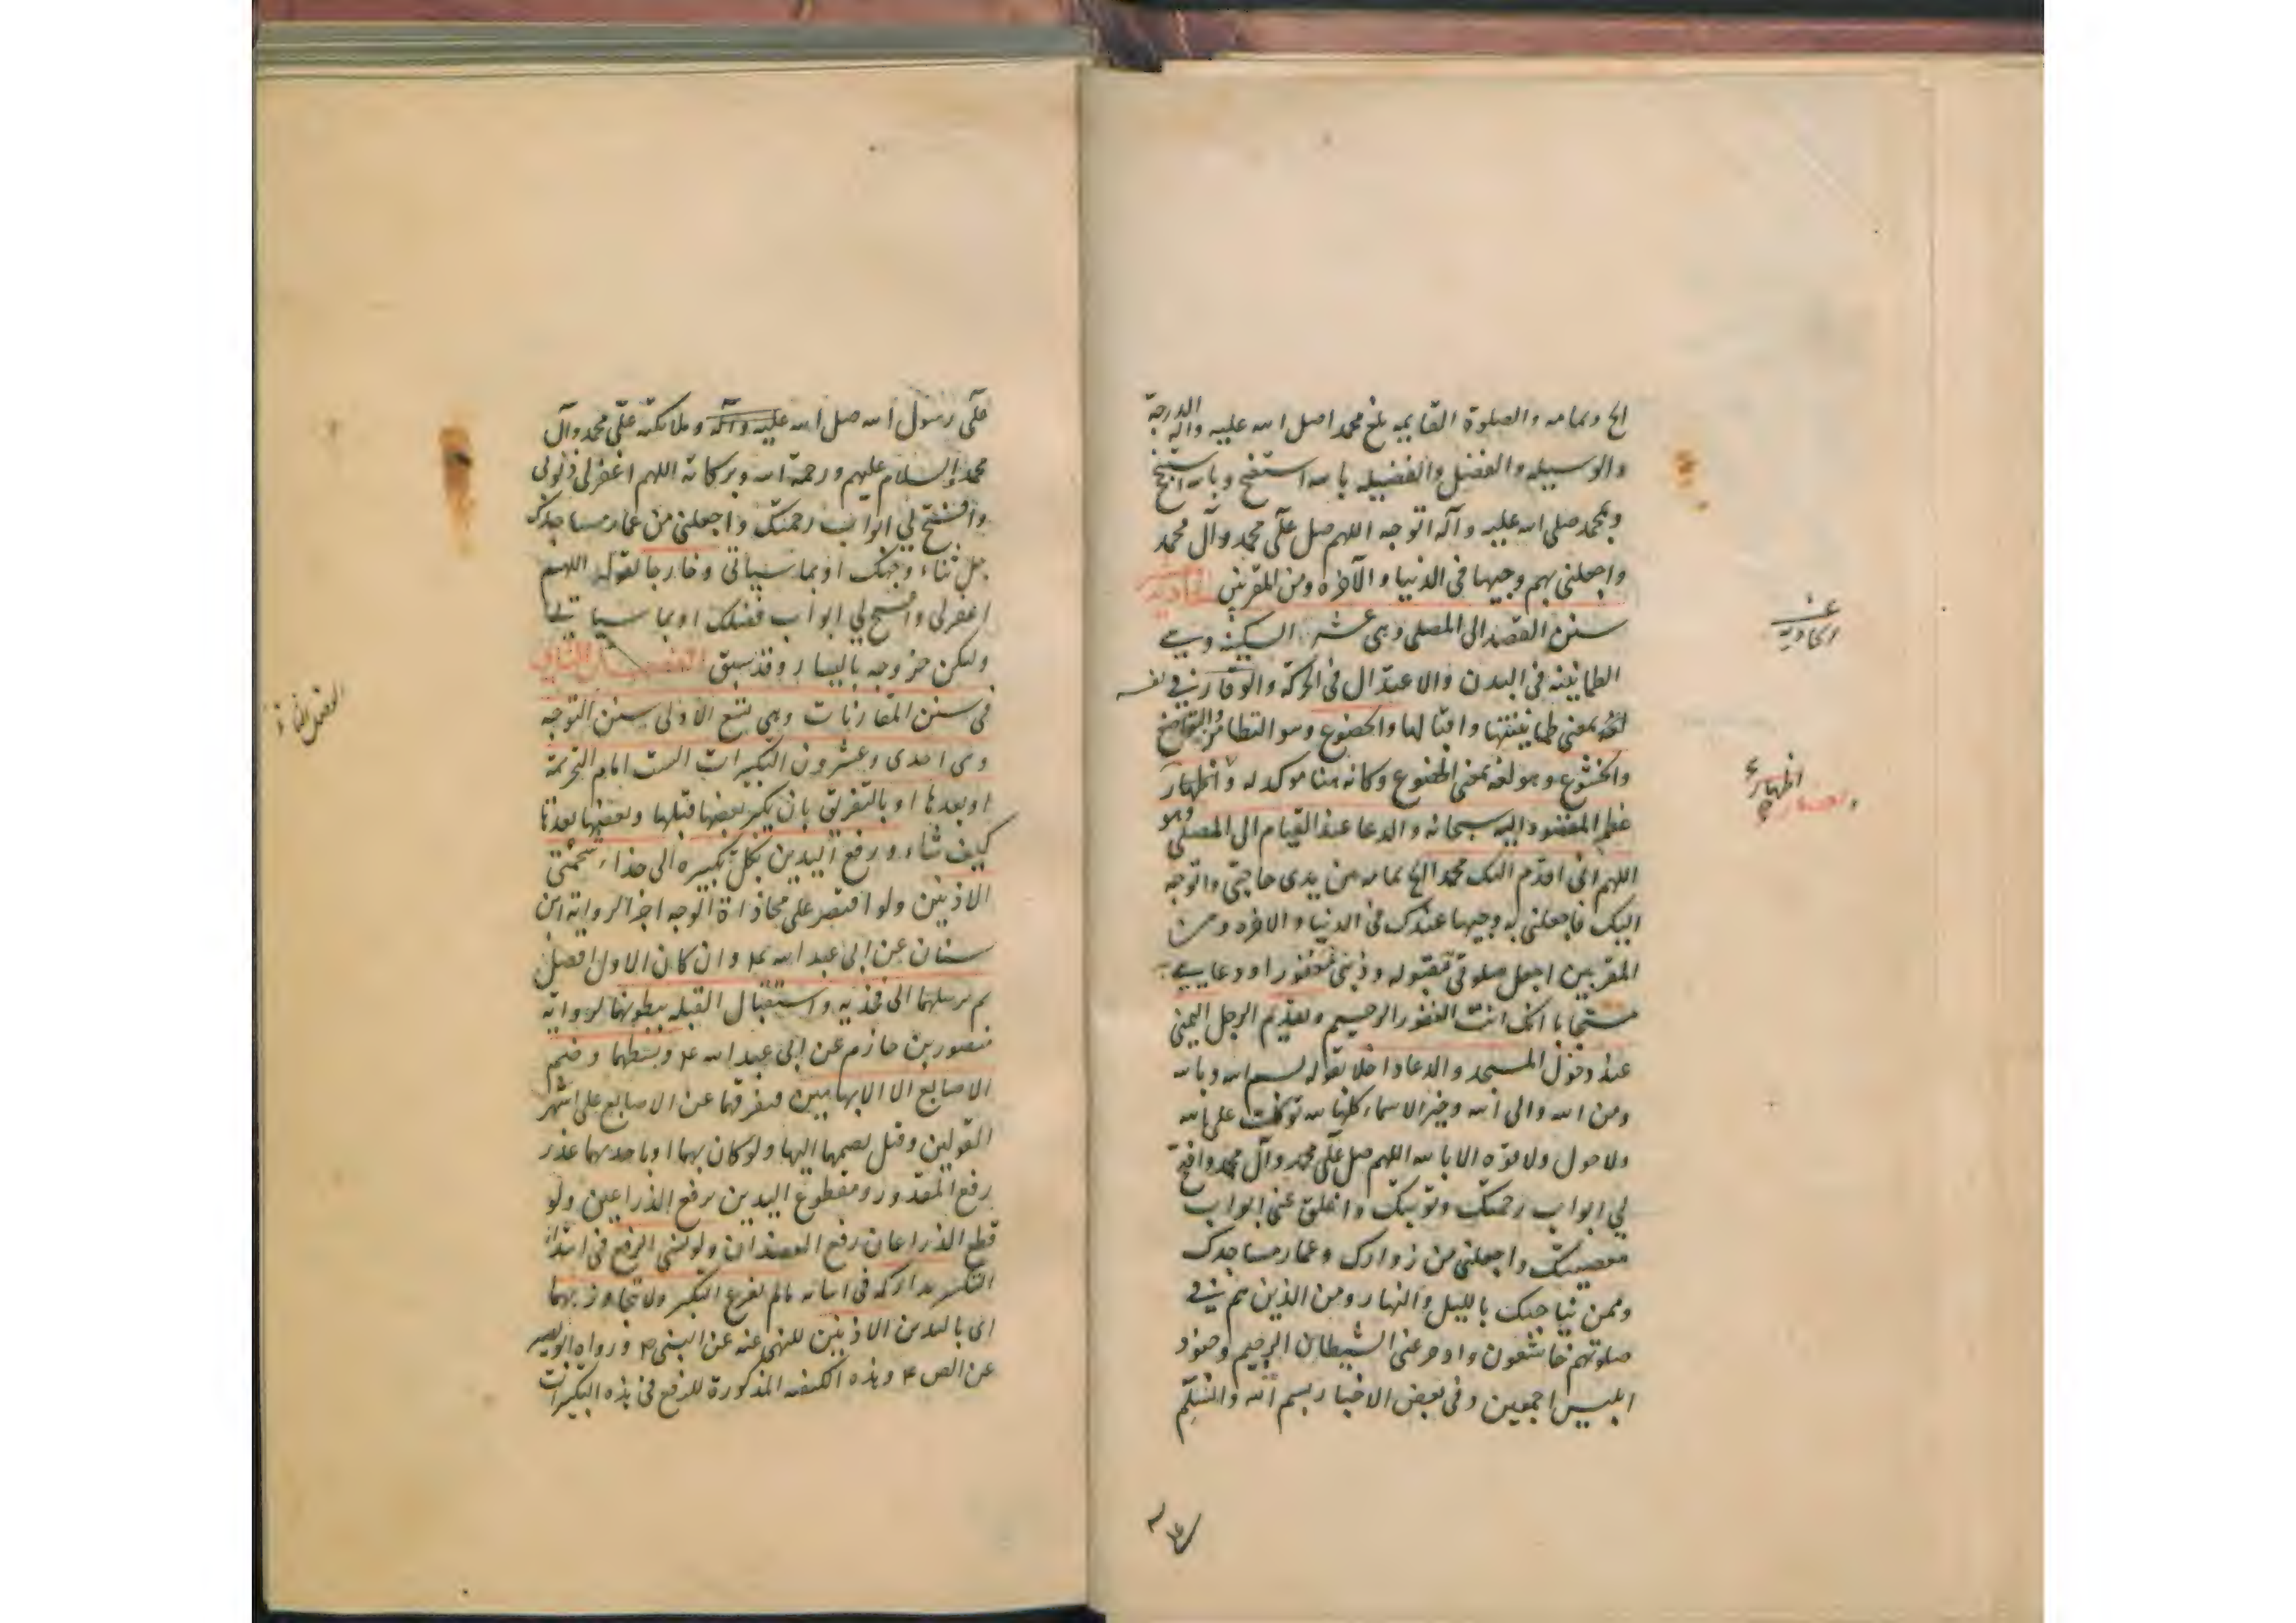 الخ وتمامه والصلوة القايمة بلغ محمدا صلى الله عليه واله الدرجة
والوسيله والفضل والفضيله بالله استفتح وبالله استنجح
وبمحمد صلى الله عليه وآله اتوجه اللهم صل على محمد وآل محمد
واجعلني بهم وجيها في الدنيا والآخره ومن المقربين الحاديه
سنن القصد الى المصلى وهي عشر السكينه وهي
الطمانينه في البدن والاعتدال في الحركة والوقار في نفسه
لغة بمعنى طمانينتها واثباتها والخضوع وهو التطامن والتواضع
والخشوع وهو لغة بمعنى الخضوع وكانه هنا موكد له واظهار
عظم المقصود اليه سبحانه والدعا عند القيام الى المصلى وهو
اللهم اني اقدم اليك محمد الخ تمامه بين يدي حاجتي واتوجه
اليك فاجعلني به وجيها عندك في الدنيا والاخره ومن
المقربين اجعل صلوتي مقبوله وذنبي مغفورا ودعايي
مستجابا انك انت الغفور الرحيم وتقديم الرجل اليمنى
عند دخول المسجد والدعا داخلا بقوله بسم الله وبالله
ومن الله والى الله وخير الاسماء كلها لله توكلت على الله
ولا حول ولا قوه الا بالله اللهم صل على محمد وآل محمد وافتح
لي ابواب رحمتك وتوبتك واغلق عني ابواب
معصيتك واجعلني من زوارك وعمار مساجدك
وممن يناجيك بالليل والنهار ومن الذين هم في
صلوتهم خاشعون وادحر عني الشيطان الرجيم وجنود
ابليس اجمعين وفي بعض الاخبار بسم الله والسلم
عشر
الحادية
اظهار
على رسول الله صلى الله عليه وآله وملائكته على محمد وآل
محمد والسلام عليهم ورحمة الله وبركاته اللهم اغفر لي ذنوبي
وافتح لي ابواب رحمتك واجعلني من عمار مساجدك
جل ثناء وجهك او بما سياتي وخارجا بقوله اللهم
اغفر لي وافتح لي ابواب فضلك او بما سياتي
وليكن خروجه باليسار وقد سبق الفصل الثاني
في سنن المقارنات وهي تسع الاولى سنن التوجه
وهي احدى وعشرون التكبيرات الست امام التحريمة
او بعدها او بالتفريق بان يكبر بعضها قبلها وبعضها بعدها
كيف شاء ورفع اليدين بكل تكبيره الى حذاء شحمتي
الاذنين ولو اقتصر على محاذاة الوجه اجزأ لرواية ابن
سنان عن ابي عبد الله ع وان كان الاول افضل
ثم يرسلهما الى فخذيه واستقبال القبله ببطونهما لرواية
منصور بن حازم عن ابي عبد الله ع وبسطهما وضم
الاصابع الا الابهامين فيفرقهما عن الاصابع على اشهر
القولين وقيل يضمهما اليها ولو كان بهما او باحديهما عذر
رفع المقدور ومقطوع اليدين يرفع الذراعين ولو
قطع الذراعان رفع العضدان ولو نسي الرفع في ابتداء
التكبير تداركه في اثنائه ما لم يفرغ التكبير ولا يتجاوز بهما
اي باليدين الاذنين للنهي عنه عن النبي ص ورواه ابو بصير
عن الص ع وهذه الكيفية المذكورة للرفع في هذه التكبيرات
الفصل الثاني